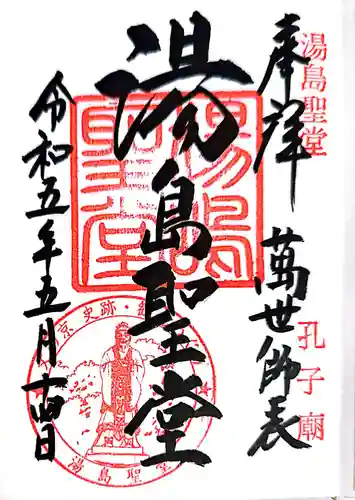 奉拝
湯島聖堂
萬世師表
孔子廟
湯島聖堂
湯島聖堂
京史跡・
湯島聖堂
令和五年五月十四日